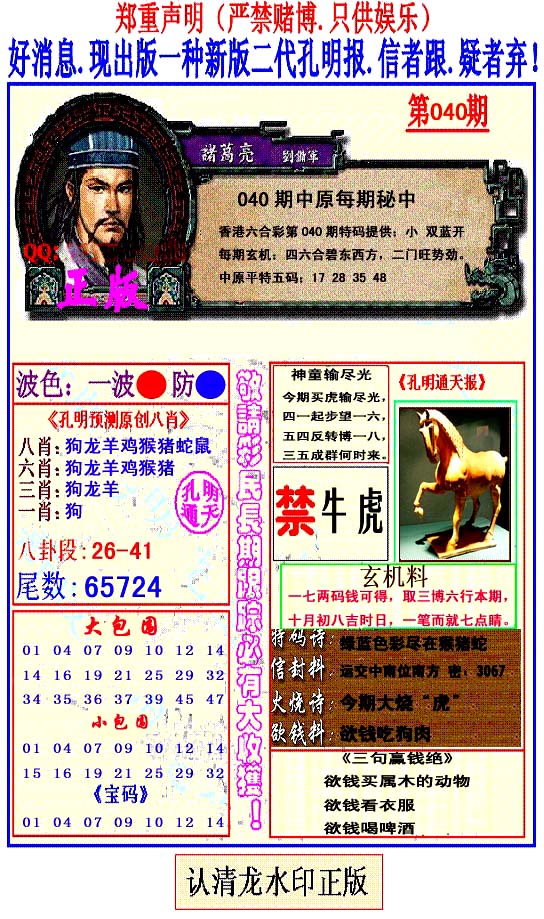 郑重声明（严禁赌博.只供娱乐）
好消息.现出版一种新版二代孔明报.信者跟.疑者弃!
第040期
諸葛亮 劉備軍
040 期中原每期秘中
香港六合彩第 040 期特码提供：小 双蓝开
每期玄机：四六合碧东西方，二门旺势劲。
中原平特五码：17 28 35 48
QQ:
正版
波色：一波 防
《孔明预测原创八肖》
八肖:狗龙羊鸡猴猪蛇鼠
六肖:狗龙羊鸡猴猪
三肖:狗龙羊
一肖:狗
孔明
通天
八卦段:26-41
尾数:65724
大包围
01 04 07 09 10 12 14
14 16 19 21 25 29 32
34 35 36 37 39 45 47
小包围
01 04 07 09 10 12 14
15 16 19 21 25 29 32
《宝码》
01 04 07 09 10 12 14
敬請彩民長期跟踪必有大收獲！
神童输尽光
今期买虎输尽光，
四一起步望一六，
五四反转博一八，
三五成群何时来。
《孔明通天报》
禁牛虎
玄机料
一七两码钱可得，取三博六行本期，
十月初八吉时日，一笔而就七点晴。
特码诗：绿蓝色彩尽在猴猪蛇
信封料：运交中南位南方 密：3067
火烧诗：今期大烧“虎”
欲钱料：欲钱吃狗肉
《三句赢钱绝》
欲钱买属木的动物
欲钱看衣服
欲钱喝啤酒
认清龙水印正版